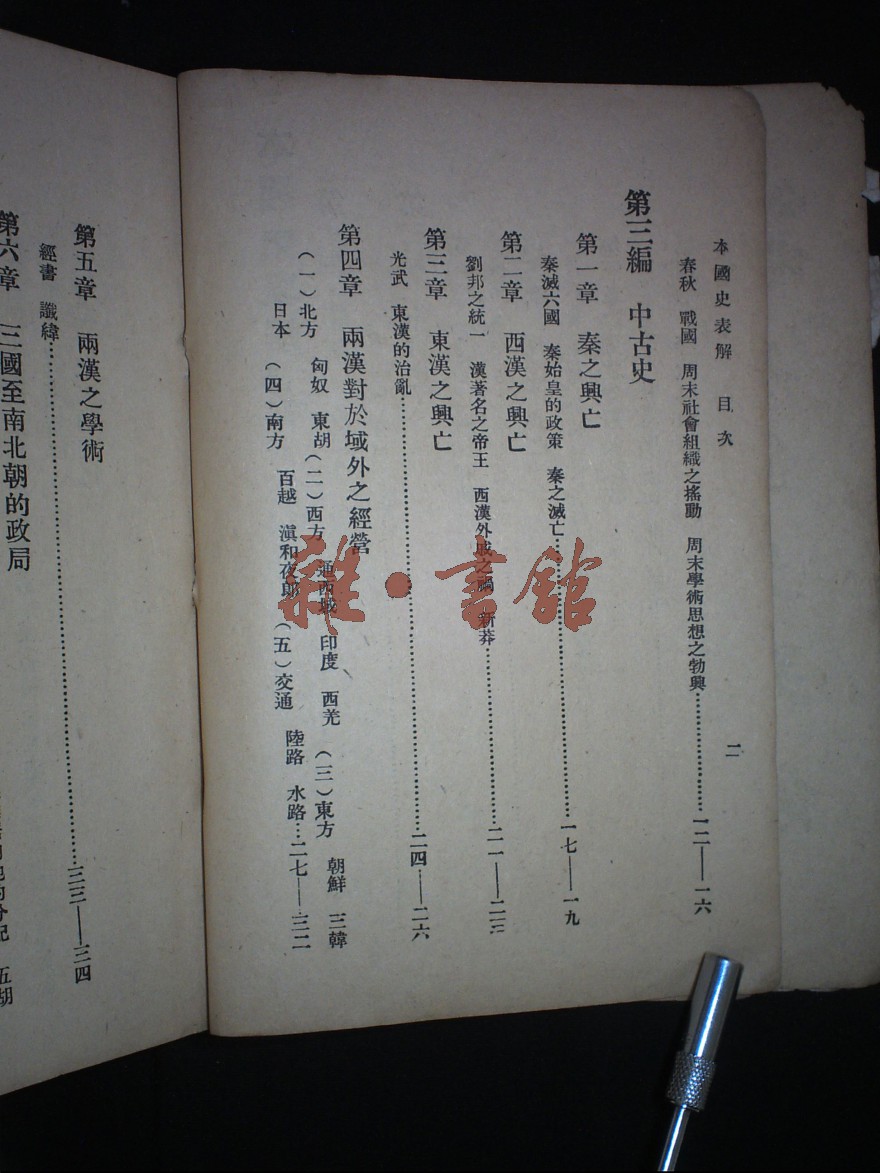 本國史表解　目次
二
春秋　戰國　周末社會組織之搖動　周末學術思想之勃興……一二——一六
第三編　中古史
第一章　秦之興亡
秦滅六國　秦始皇的政策　秦之滅亡……一七——一九
第二章　西漢之興亡
劉邦之統一　漢著名之帝王　西漢外戚之禍　新莽……二一——二三
第三章　東漢之興亡
光武　東漢的治亂……二四——二六
第四章　兩漢對於域外之經營
(一)北方　匈奴　東胡(二)西方　通西域　印度　西羌　(三)東方　朝鮮　三韓
日本　(四)南方　百越　滇和夜郎　(五)交通　陸路　水路…二七——三二
第五章　兩漢之學術
經書　讖緯……三三——三四
第六章　三國至南北朝的政局
五胡
雜·書館